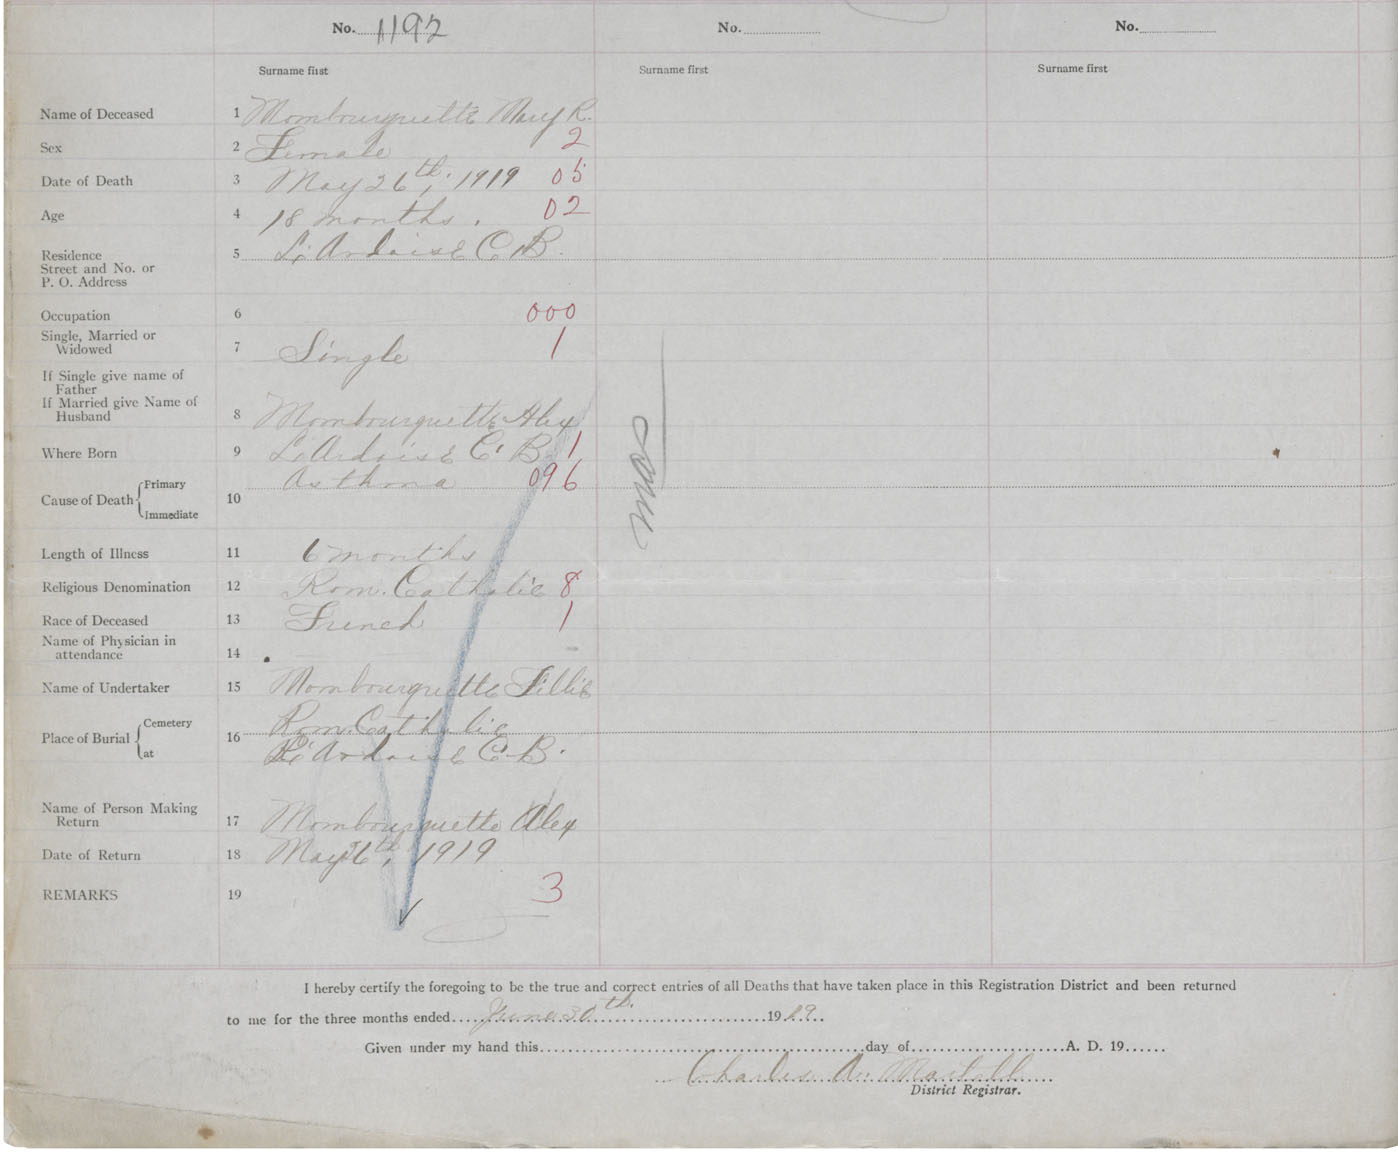 No. 1192 No. No.
Surname first Surname first Surname first
Name of Deceased 1 Mombourquette Mary R.
Sex 2 Female 2
Date of Death 3 May 26th, 1919 05
Age 4 18 months. 02
Residence
Street and No. or
P. O. Address 5 L'Ardoise C.B.
Occupation 6 000
Single, Married or
Widowed 7 Single 1
If Single give name of
Father
If Married give Name of
Husband 8 Mombourquette Alex
Where Born 9 L'Ardoise C.B. 1
Cause of Death Primary 10 Asthma 096
Immediate
Length of Illness 11 6 months
Religious Denomination 12 Rom. Catholic 8
Race of Deceased 13 French 1
Name of Physician in
attendance 14
Name of Undertaker 15 Mombourquette
Place of Burial Cemetery 16 Rom. Catholic
at L'Ardoise C.B.
Name of Person Making
Return 17 Mombourquette Alex
Date of Return 18 May 26th, 1919
REMARKS 19 3
I hereby certify the foregoing to be the true and correct entries of all Deaths that have taken place in this Registration District and been returned
to me for the three months ended June 30th 1919
Given under my hand this day of A. D. 19
Charles A.
District Registrar.